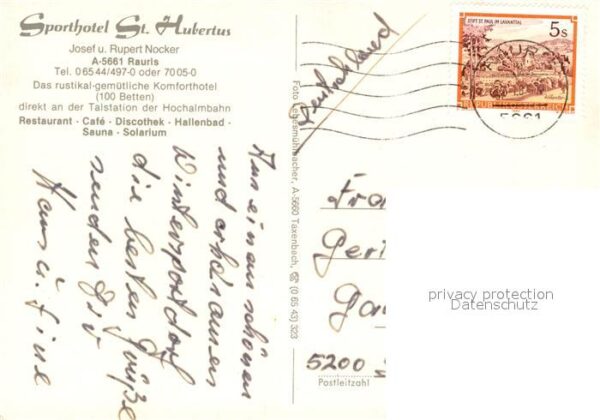 Sporthotel St. Hubertus
Josef u. Rupert Nocker
A-5661 Rauris
Tel. 0 65 44/497-0 oder 70 05-0
Das rustikal-gemütliche Komforthotel
(100 Betten)
direkt an der Talstation der Hochalmbahn
Restaurant · Café · Discothek · Hallenbad ·
Sauna · Solarium
Aus einem schönen
und erholsamen
Wintersportdorf
die besten Grüße
senden Dir
Hans u.
Deutschland
STIFT ST. PAUL IM LAVANTTAL
5s
REPUBLIK ÖSTERREICH
5661
Foto A-5660 Taxenbach, ☎ (0 65 43) 323
Fra
Geri
Ga
5200
Postleitzahl
privacy protection
Datenschutz